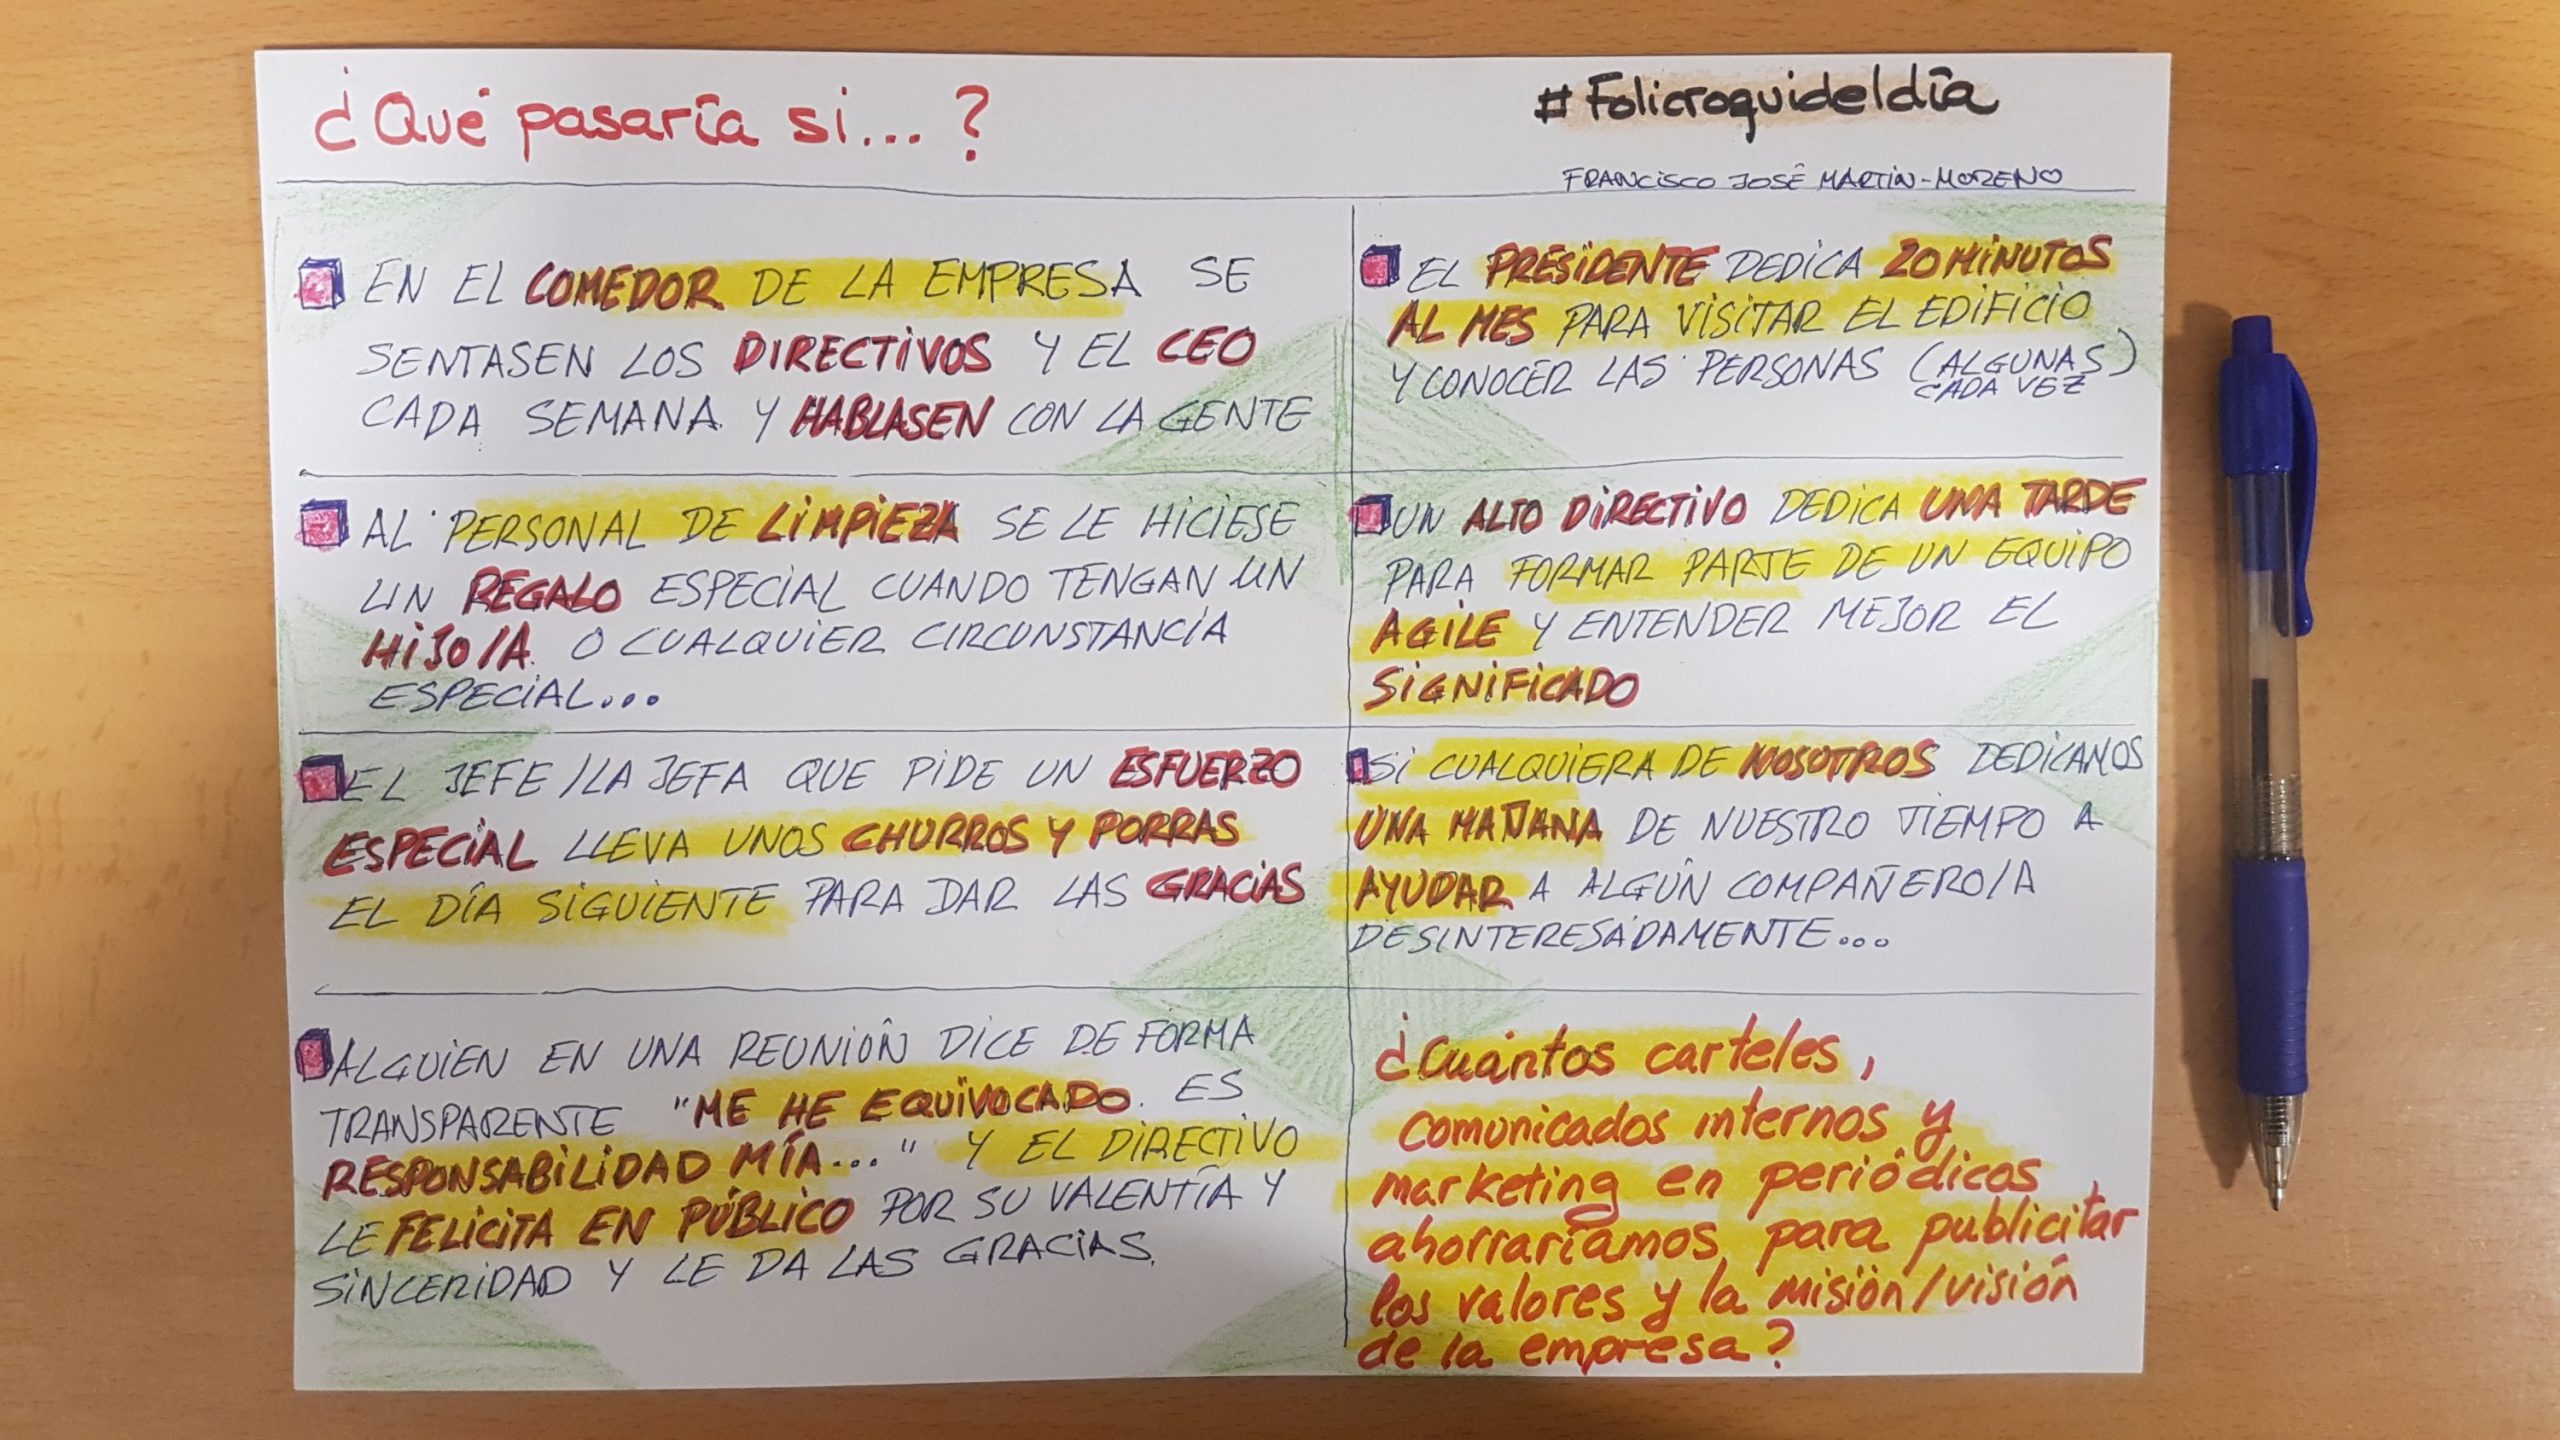 ¿Qué pasaría si...?
#Folicroquideldía
FRANCISCO JOSÉ MARTÍN-MORENO
EN EL COMEDOR DE LA EMPRESA SE
SENTASEN LOS DIRECTIVOS Y EL CEO
CADA SEMANA Y HABLASEN CON LA GENTE
AL PERSONAL DE LIMPIEZA SE LE HICIESE
UN REGALO ESPECIAL CUANDO TENGAN UN
HIJO/A O CUALQUIER CIRCUNSTANCIA
ESPECIAL...
EL JEFE/LA JEFA QUE PIDE UN ESFUERZO
ESPECIAL LLEVA UNOS CHURROS Y PORRAS
EL DÍA SIGUIENTE PARA DAR LAS GRACIAS
ALGUIEN EN UNA REUNIÓN DICE DE FORMA
TRANSPARENTE "ME HE EQUIVOCADO. ES
RESPONSABILIDAD MÍA..." Y EL DIRECTIVO
LE FELICITA EN PÚBLICO POR SU VALENTÍA Y
SINCERIDAD Y LE DA LAS GRACIAS.
EL PRESIDENTE DEDICA 20 MINUTOS
AL MES PARA VISITAR EL EDIFICIO
Y CONOCER LAS PERSONAS (ALGUNAS)
CADA VEZ
UN ALTO DIRECTIVO DEDICA UNA TARDE
PARA FORMAR PARTE DE UN EQUIPO
AGILE Y ENTENDER MEJOR EL
SIGNIFICADO
SI CUALQUIERA DE NOSOTROS DEDICAMOS
UNA MAÑANA DE NUESTRO TIEMPO A
AYUDAR A ALGÚN COMPAÑERO/A
DESINTERESADAMENTE...
¿Cuántos carteles,
comunicados internos y
marketing en periódicos
ahorraríamos para publicitar
los valores y la misión/visión
de la empresa?